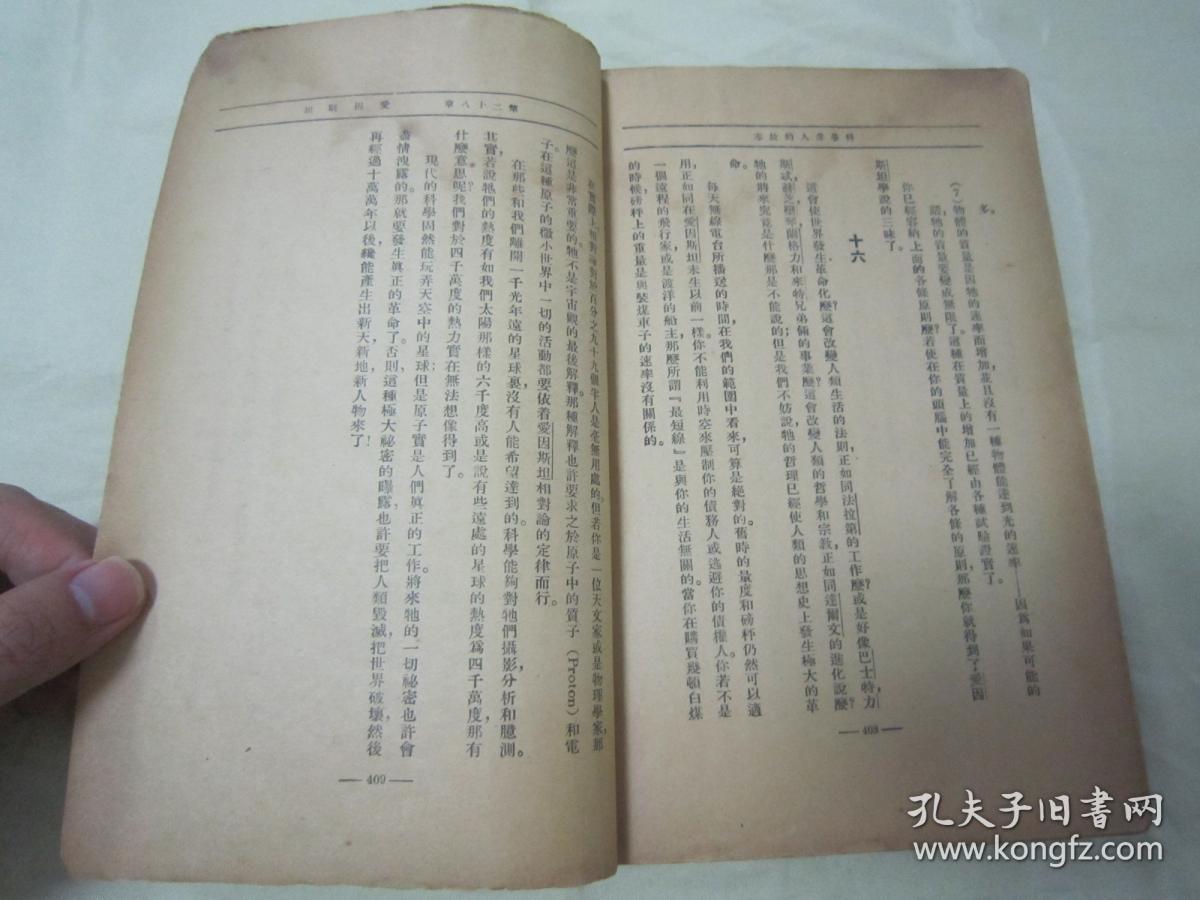 科學偉人的故事
多。
(7)物體的質量是因牠的速率而增加,並且沒有一種物體能達到光的速率——因爲如果可能的
話,牠的質量要變成無限了。這種在質量上的增加已經由各種試驗證實了。
你已經容納上面的各條原則麽?若使在你的頭腦中能完全了解各條的原則,那麽你就得到了愛因
斯坦學說的三昧了。
十六
這會使世界發生革命化麽?這會改變人類生活的法則,正如同法拉第的工作麽?或是好像巴士特,力
斯忒,赫芝,歷蘭格力和來特兄弟倆的事業麽?這會改變人類的哲學和宗教,正如同達爾文的進化說麽?
牠的將來究竟是什麽,那是不能說的;但是我們不妨說牠的哲理已經使人類的思想史上發生極大的革
命。
每天無線電台所播送的時間,在我們的範圍中看來,可算是絕對的。舊時的量度和磅秤仍然可以適
用,正如同在愛因斯坦未生以前一樣。你不能利用時空來壓制你的債務人或逃避你的債權人。你若不是
一個遠程的飛行家或是渡洋的船主,那麽所謂『最短線』是與你的生活無關的。當你在購買幾頓白煤
的時候,磅秤上的重量是與裝煤車子的速率沒有關係的。
— 408 —
第二十八章 愛因斯坦
在實際上,相對論對於百分之九十九個半人是毫無用處的,但若你是一位天文家或是物理學家,那
麽這是非常重要的。牠不是宇宙觀的最後解釋。那種解釋也許要求之於原子中的質子(Proton)和電
子。在這種原子的微小世界中一切的活動都要依着愛因斯坦相對論的定律而行。
在那些和我們離開一千光年遠的星球裏,沒有人能希望達到的,科學能夠對牠們攝影,分析和臆測。
其實若說牠們的熱度有如我們太陽那樣的六千度高,或是說有些遠處的星球的熱度爲四千萬度,那有
什麽意思呢?我們對於四千萬度的熱力實在無法想像得到了。
現代的科學固然能玩弄天空中的星球;但是原子實是人們眞正的工作。將來牠的一切祕密也許會
盡情洩露的。那就要發生眞正的革命了。否則這種極大祕密的曝露也許要把人類毀滅,把世界破壞,然後
再經過十萬萬年以後,纔能產生出新天新地新人物來了!
— 409 —
孔夫子旧书网
www.kongfz.com